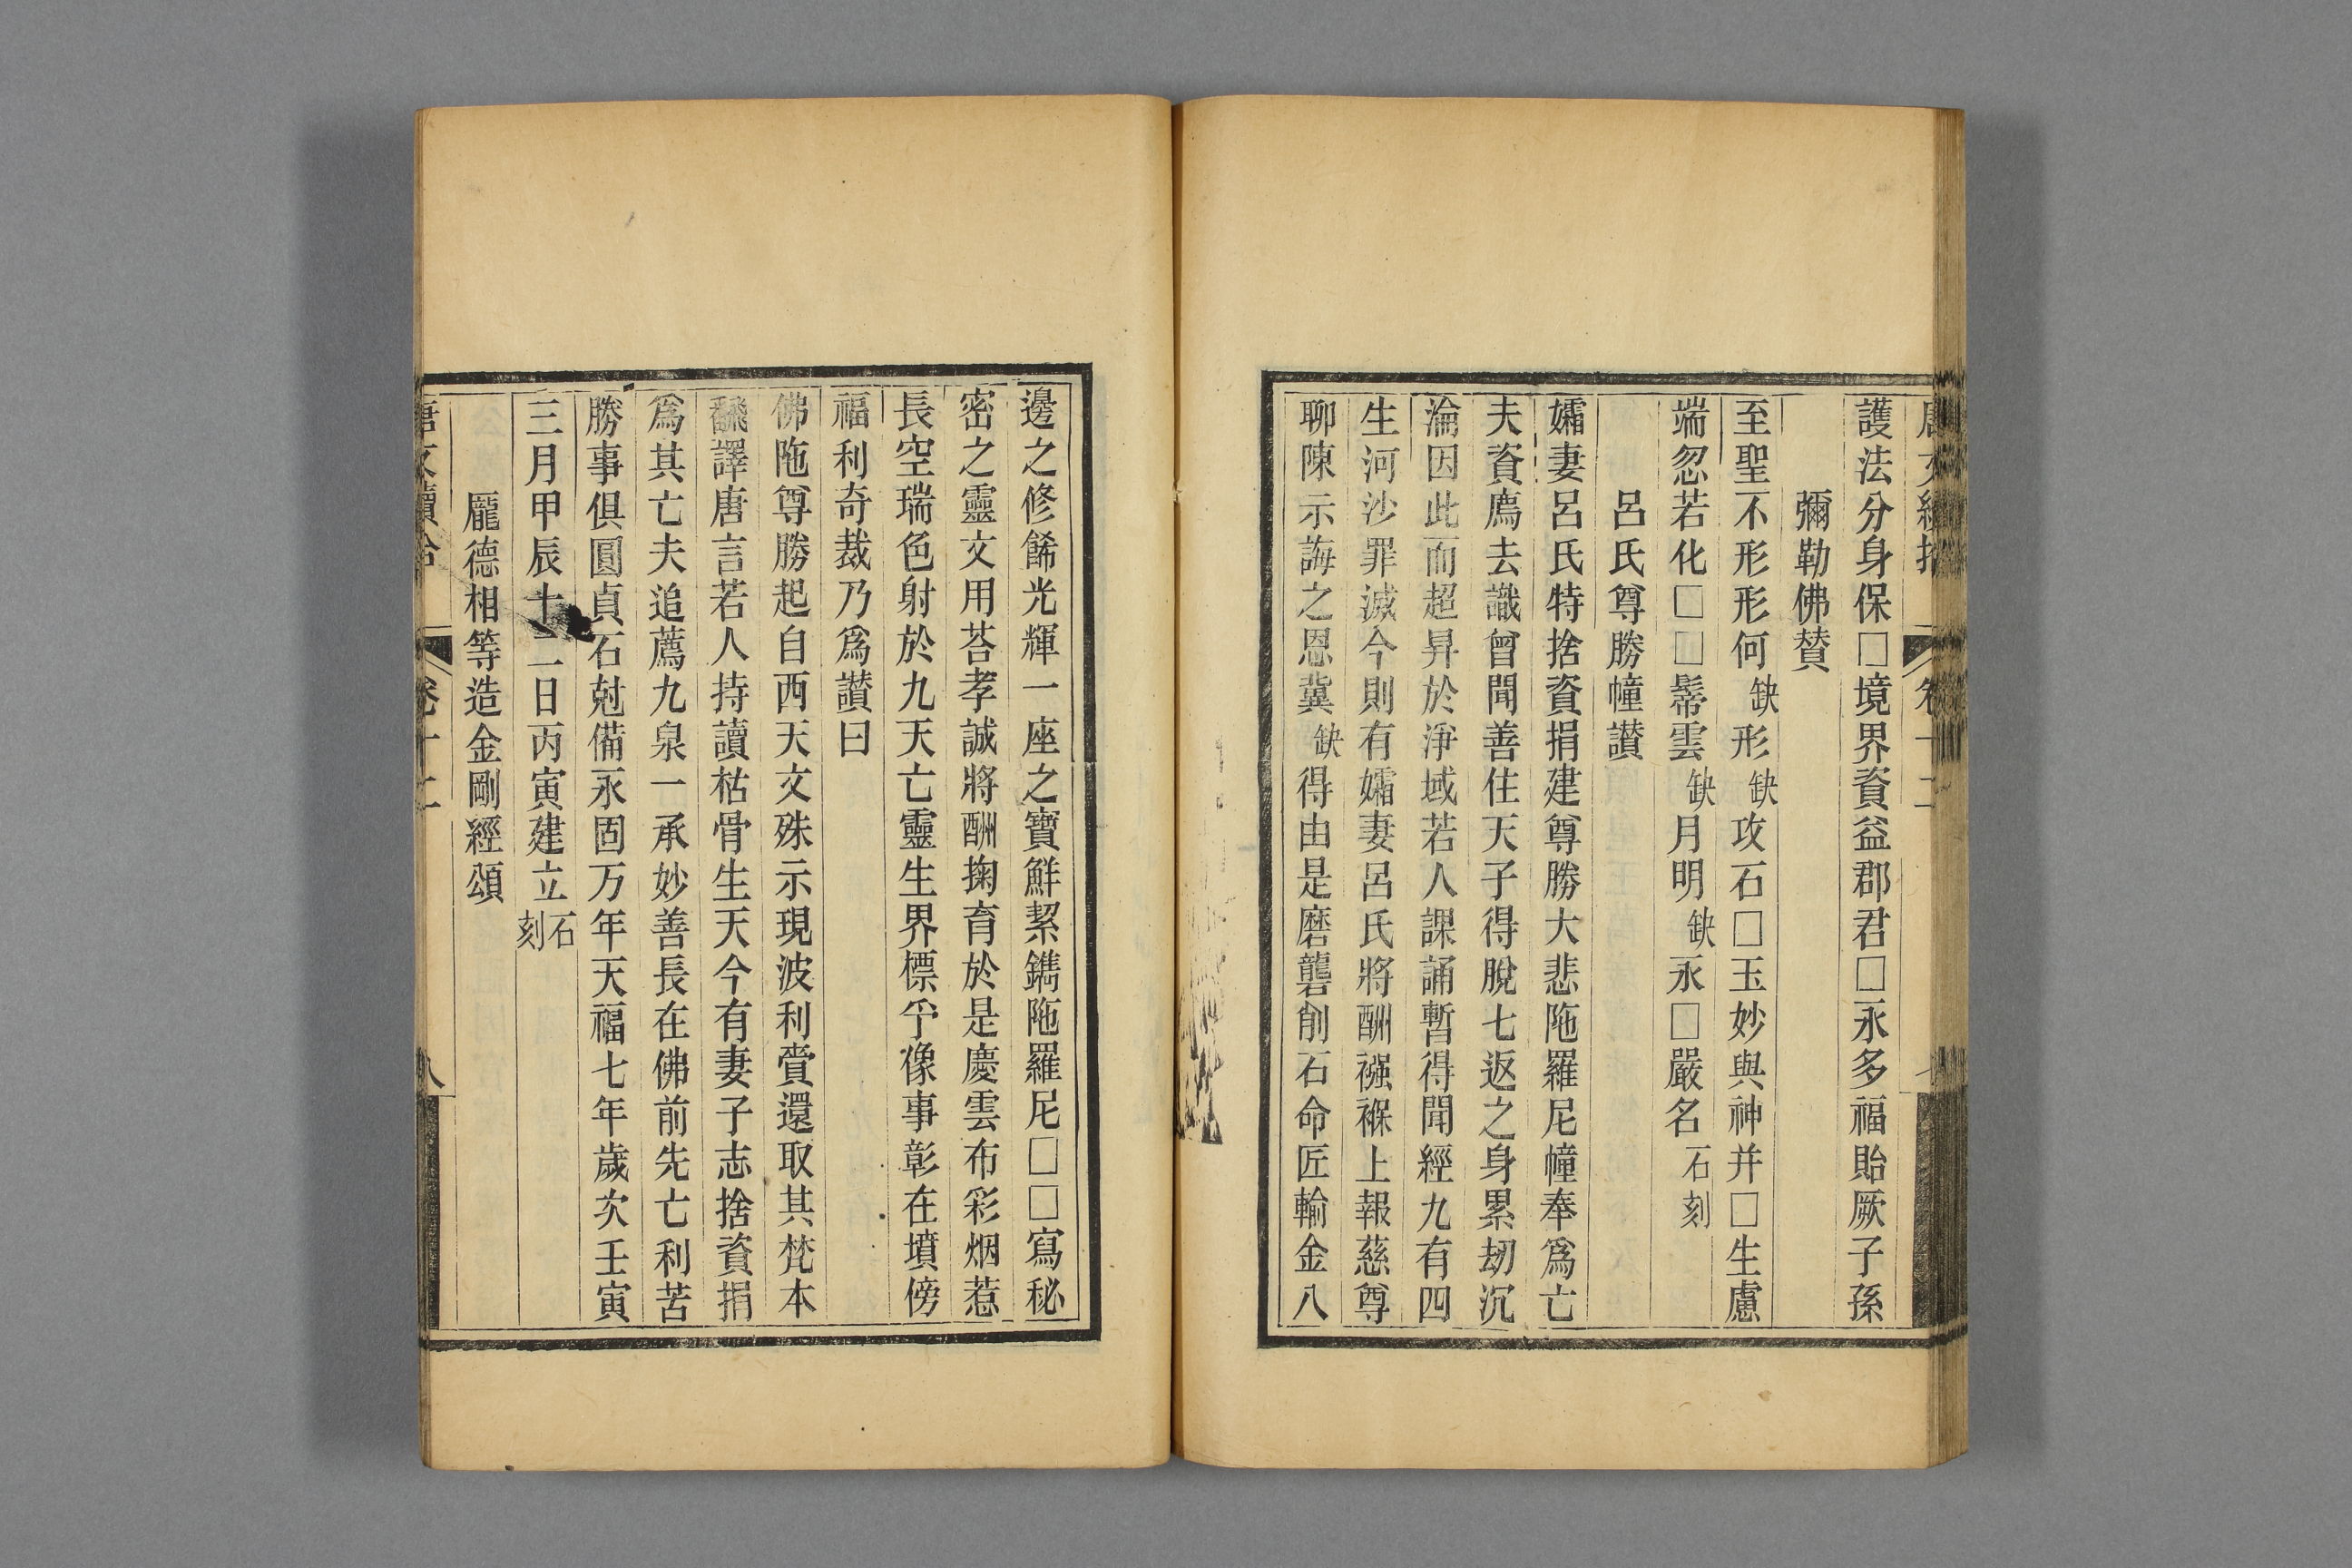 護法分身保□境界資益郡君□永多福貽厥子孫
彌勒佛賛
至聖不形形何缺形缺攻石□玉妙與神并□生慮
端忽若化□□鬀雲缺月明缺永□嚴名石刻
呂氏尊勝幢讃
孀妻呂氏特捨資捐建尊勝大悲陁羅尼幢奉爲亡
夫資廌去識曾聞善住天子得脫七返之身累刼沉
淪因此而超昇於淨域若人課誦暫得聞經九有四
生河沙罪滅今則有孀妻呂氏將酬襁褓上報慈尊
聊陳示誨之恩冀缺得由是磨礱削石命匠輸金八
邊之修餙光輝一座之寶鮮絜鐫陁羅尼□□寫秘
密之靈文用荅孝誠將酬掬育於是慶雲布彩烟惹
長空瑞色射於九天亡靈生界標乎像事彰在墳傍
福利奇裁乃爲讃曰
佛陁尊勝起自西天文殊示現波利賷還取其梵本
飜譯唐言若人持讀枯骨生天今有妻子志捨資捐
爲其亡夫追薦九泉一承妙善長在佛前先亡利苦
勝事俱圓貞石尅備永固万年天福七年歲次壬寅
三月甲辰十二日丙寅建立石刻
龎德相等造金剛經頌
唐文續拾 卷十二 八